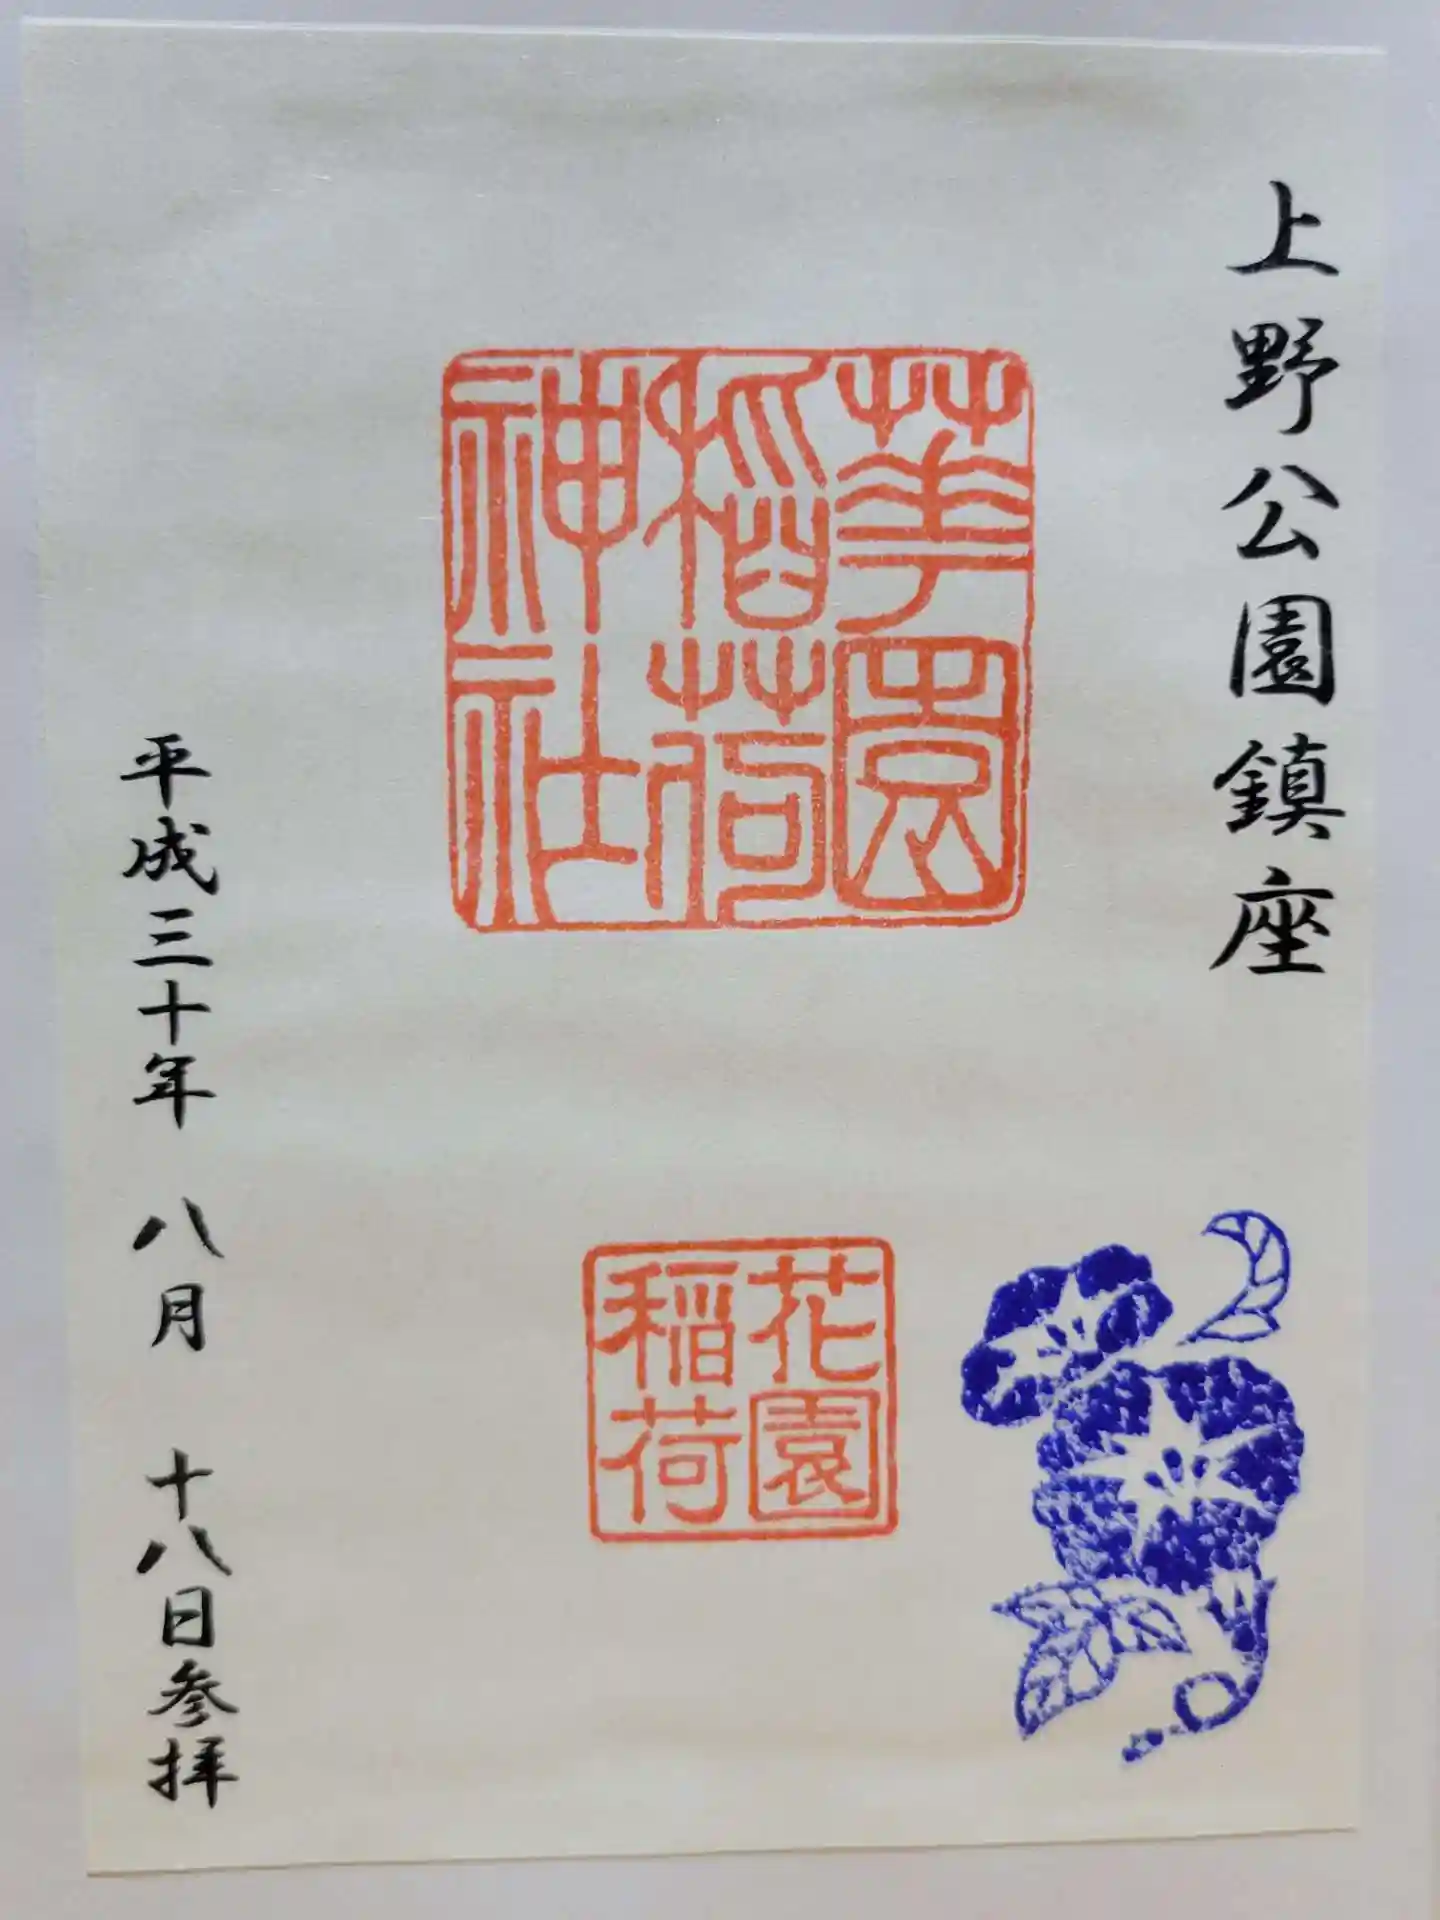 上野公園鎮座
華園
稲荷
神社
花園
稲荷
平成三十年 八月 十八日参拝